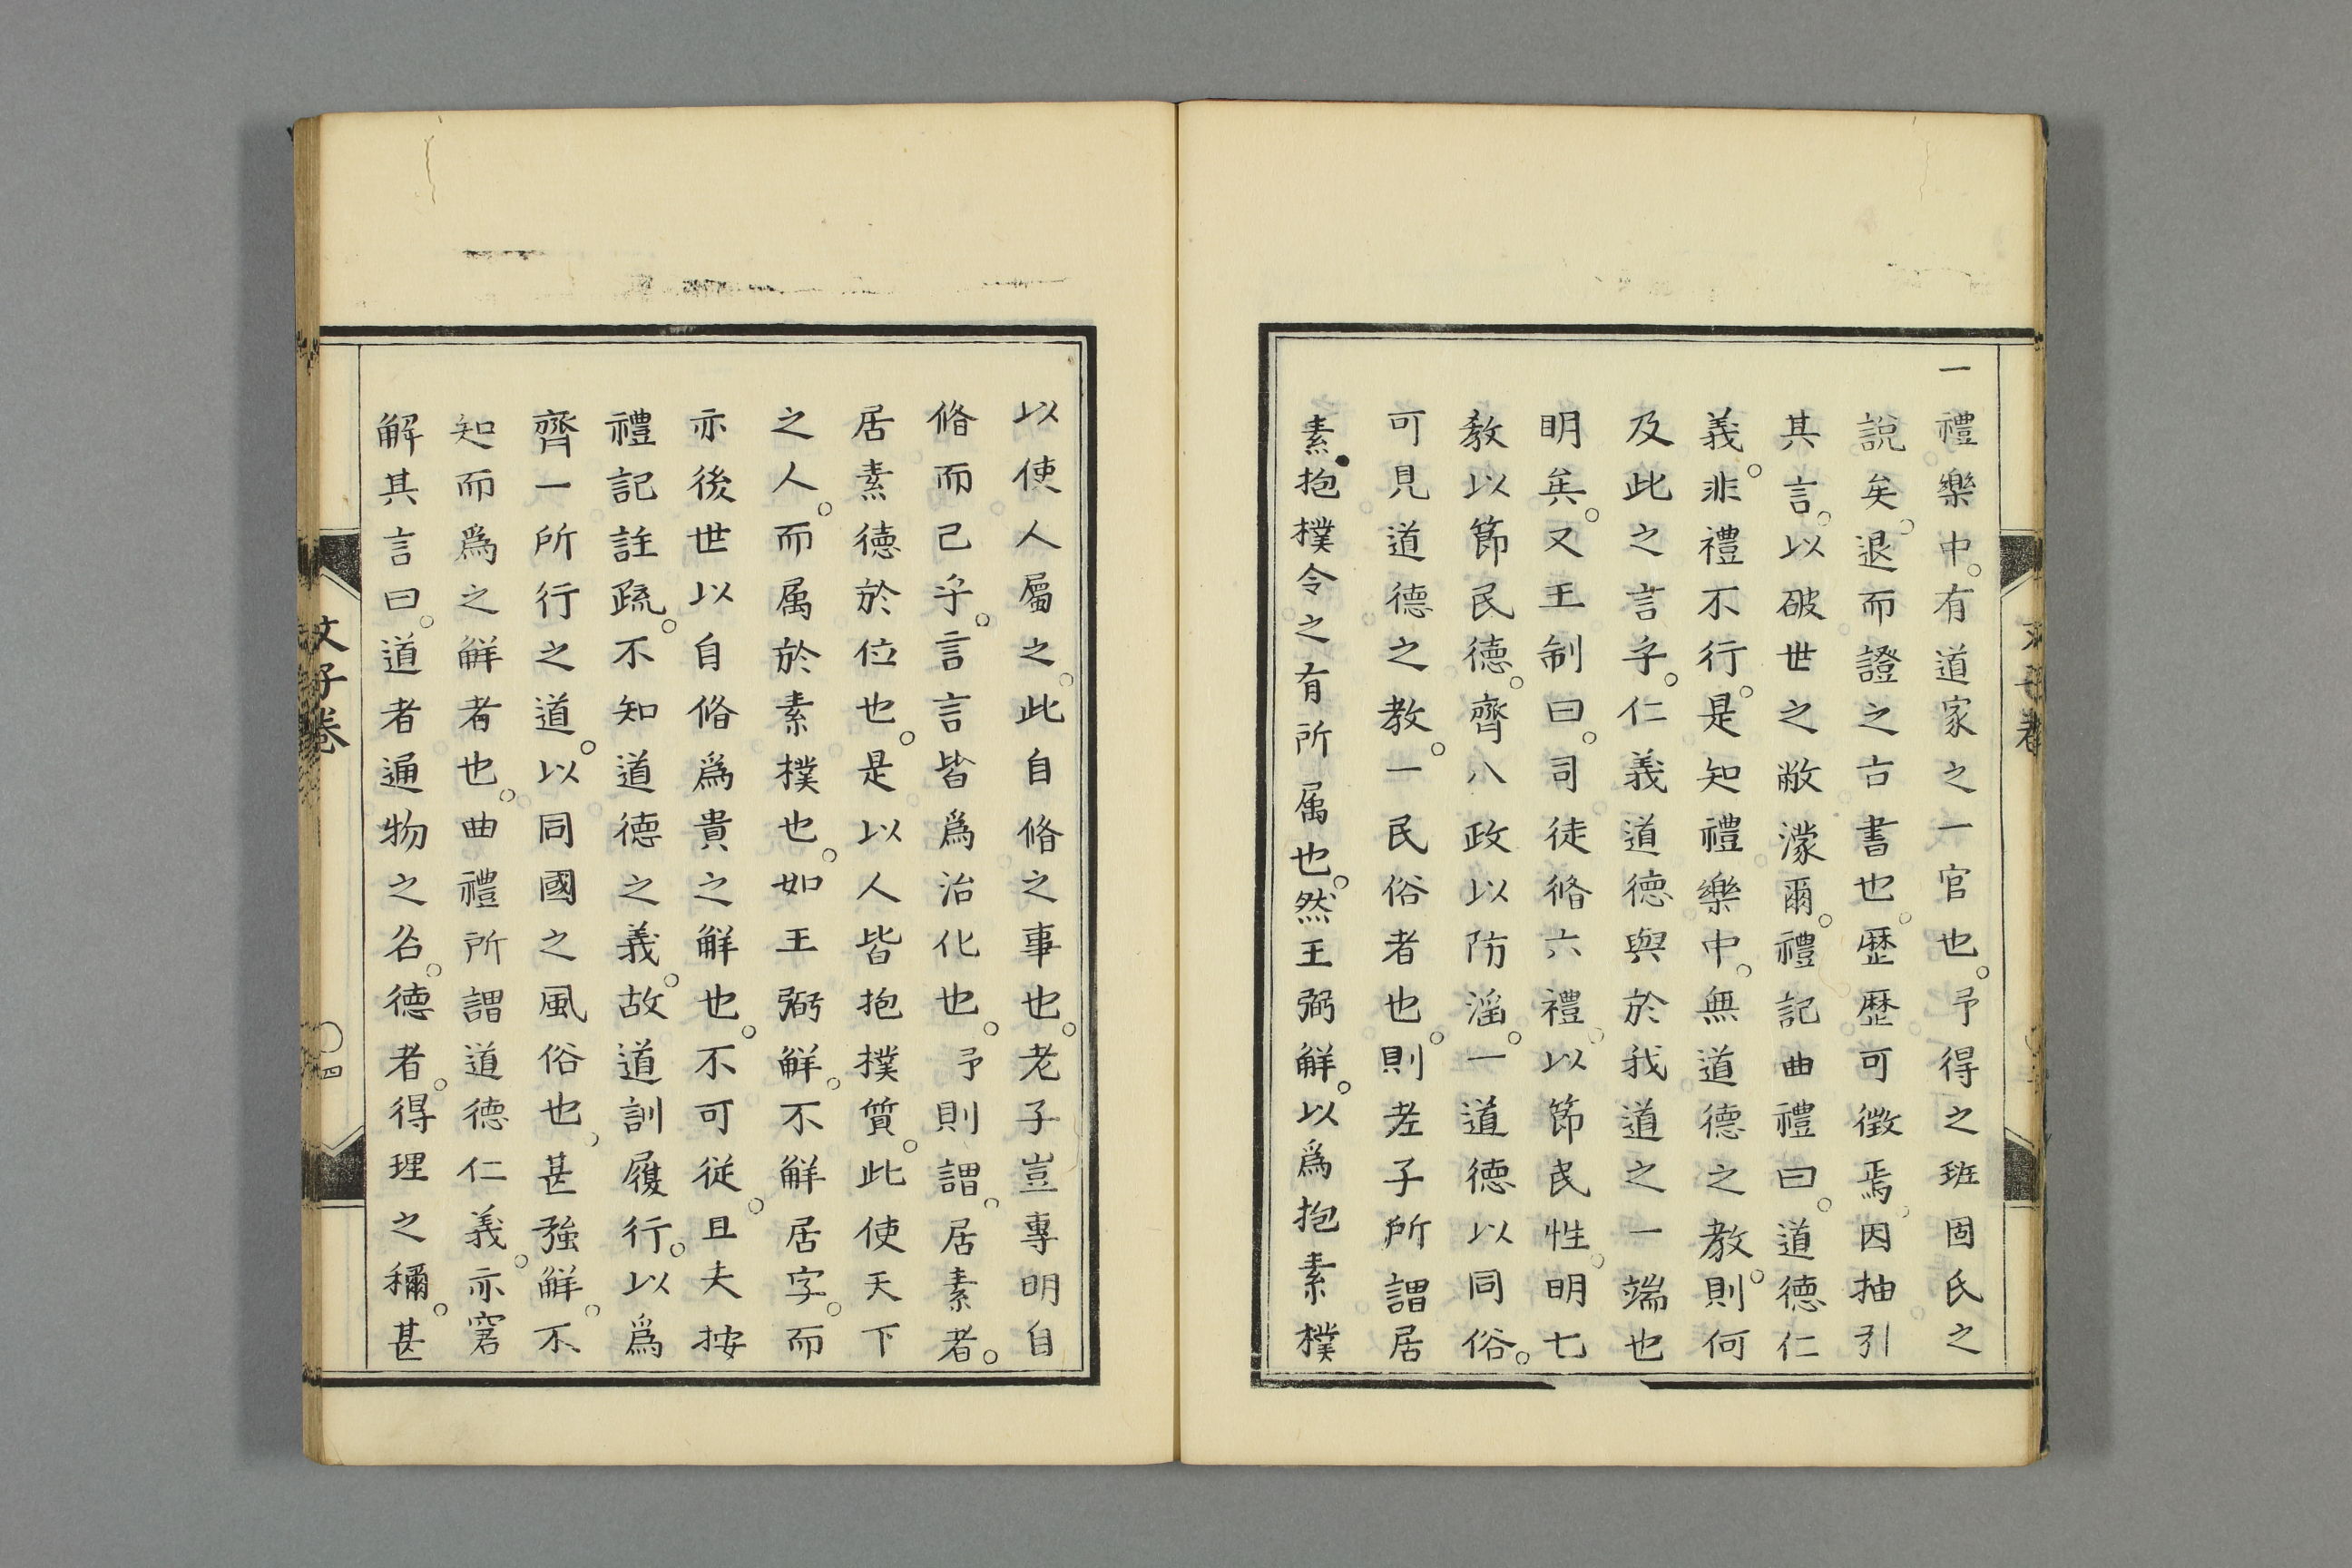 一禮樂中。有道家之一官也。予得之班固氏之
說矣。退而證之古書也。歷歷可徵焉。因抽引
其言。以破世之敝濛爾。禮記曲禮曰。道德仁
義。非禮不行。是知禮樂中。無道德之教。則何
及此之言乎。仁義道德與於我道之一端也
明矣。又王制曰。司徒脩六禮。以節民性。明七
教以節民德。齊八政以防滛。一道德以同俗。
可見道德之教。一民俗者也。則老子所謂居
素抱樸令之有所属也。然王弼解。以爲抱素樸
以使人屬之。此自脩之事也。老子豈專明自
脩而已乎。言言皆爲治化也。予則謂。居素者。
居素德於位也。是以人皆抱樸質。此使天下
之人。而属於素樸也。如王弼解。不解居字。而
亦後世以自脩爲貴之解也。不可從。且夫按
禮記註疏。不知道德之義。故道訓履行。以爲
齊一所行之道。以同國之風俗也。甚強解。不
知而爲之解者也。曲禮所謂道德仁義。亦窘
解其言曰。道者通物之名。德者。得理之稱。甚
文子卷
四